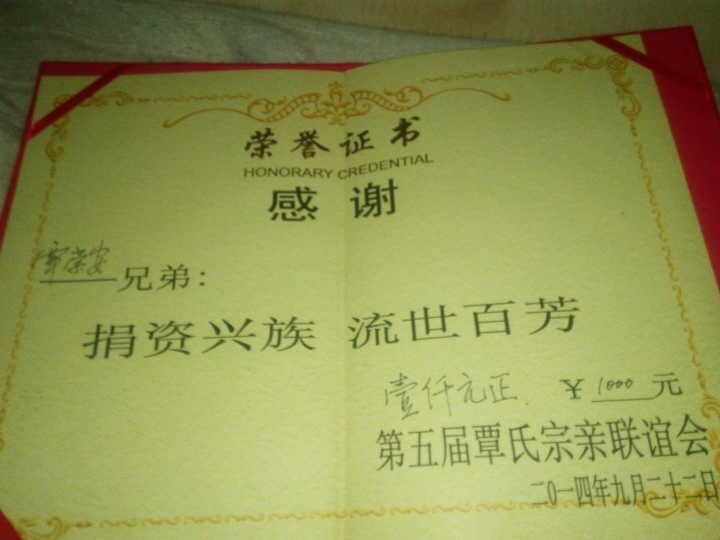 荣誉证书
HONORARY CREDENTIAL
感谢
覃荣安兄弟：
捐资兴族 流世百芳
壹仟元正 ¥1000元
第五届覃氏宗亲联谊会
二0一四年九月二十二日